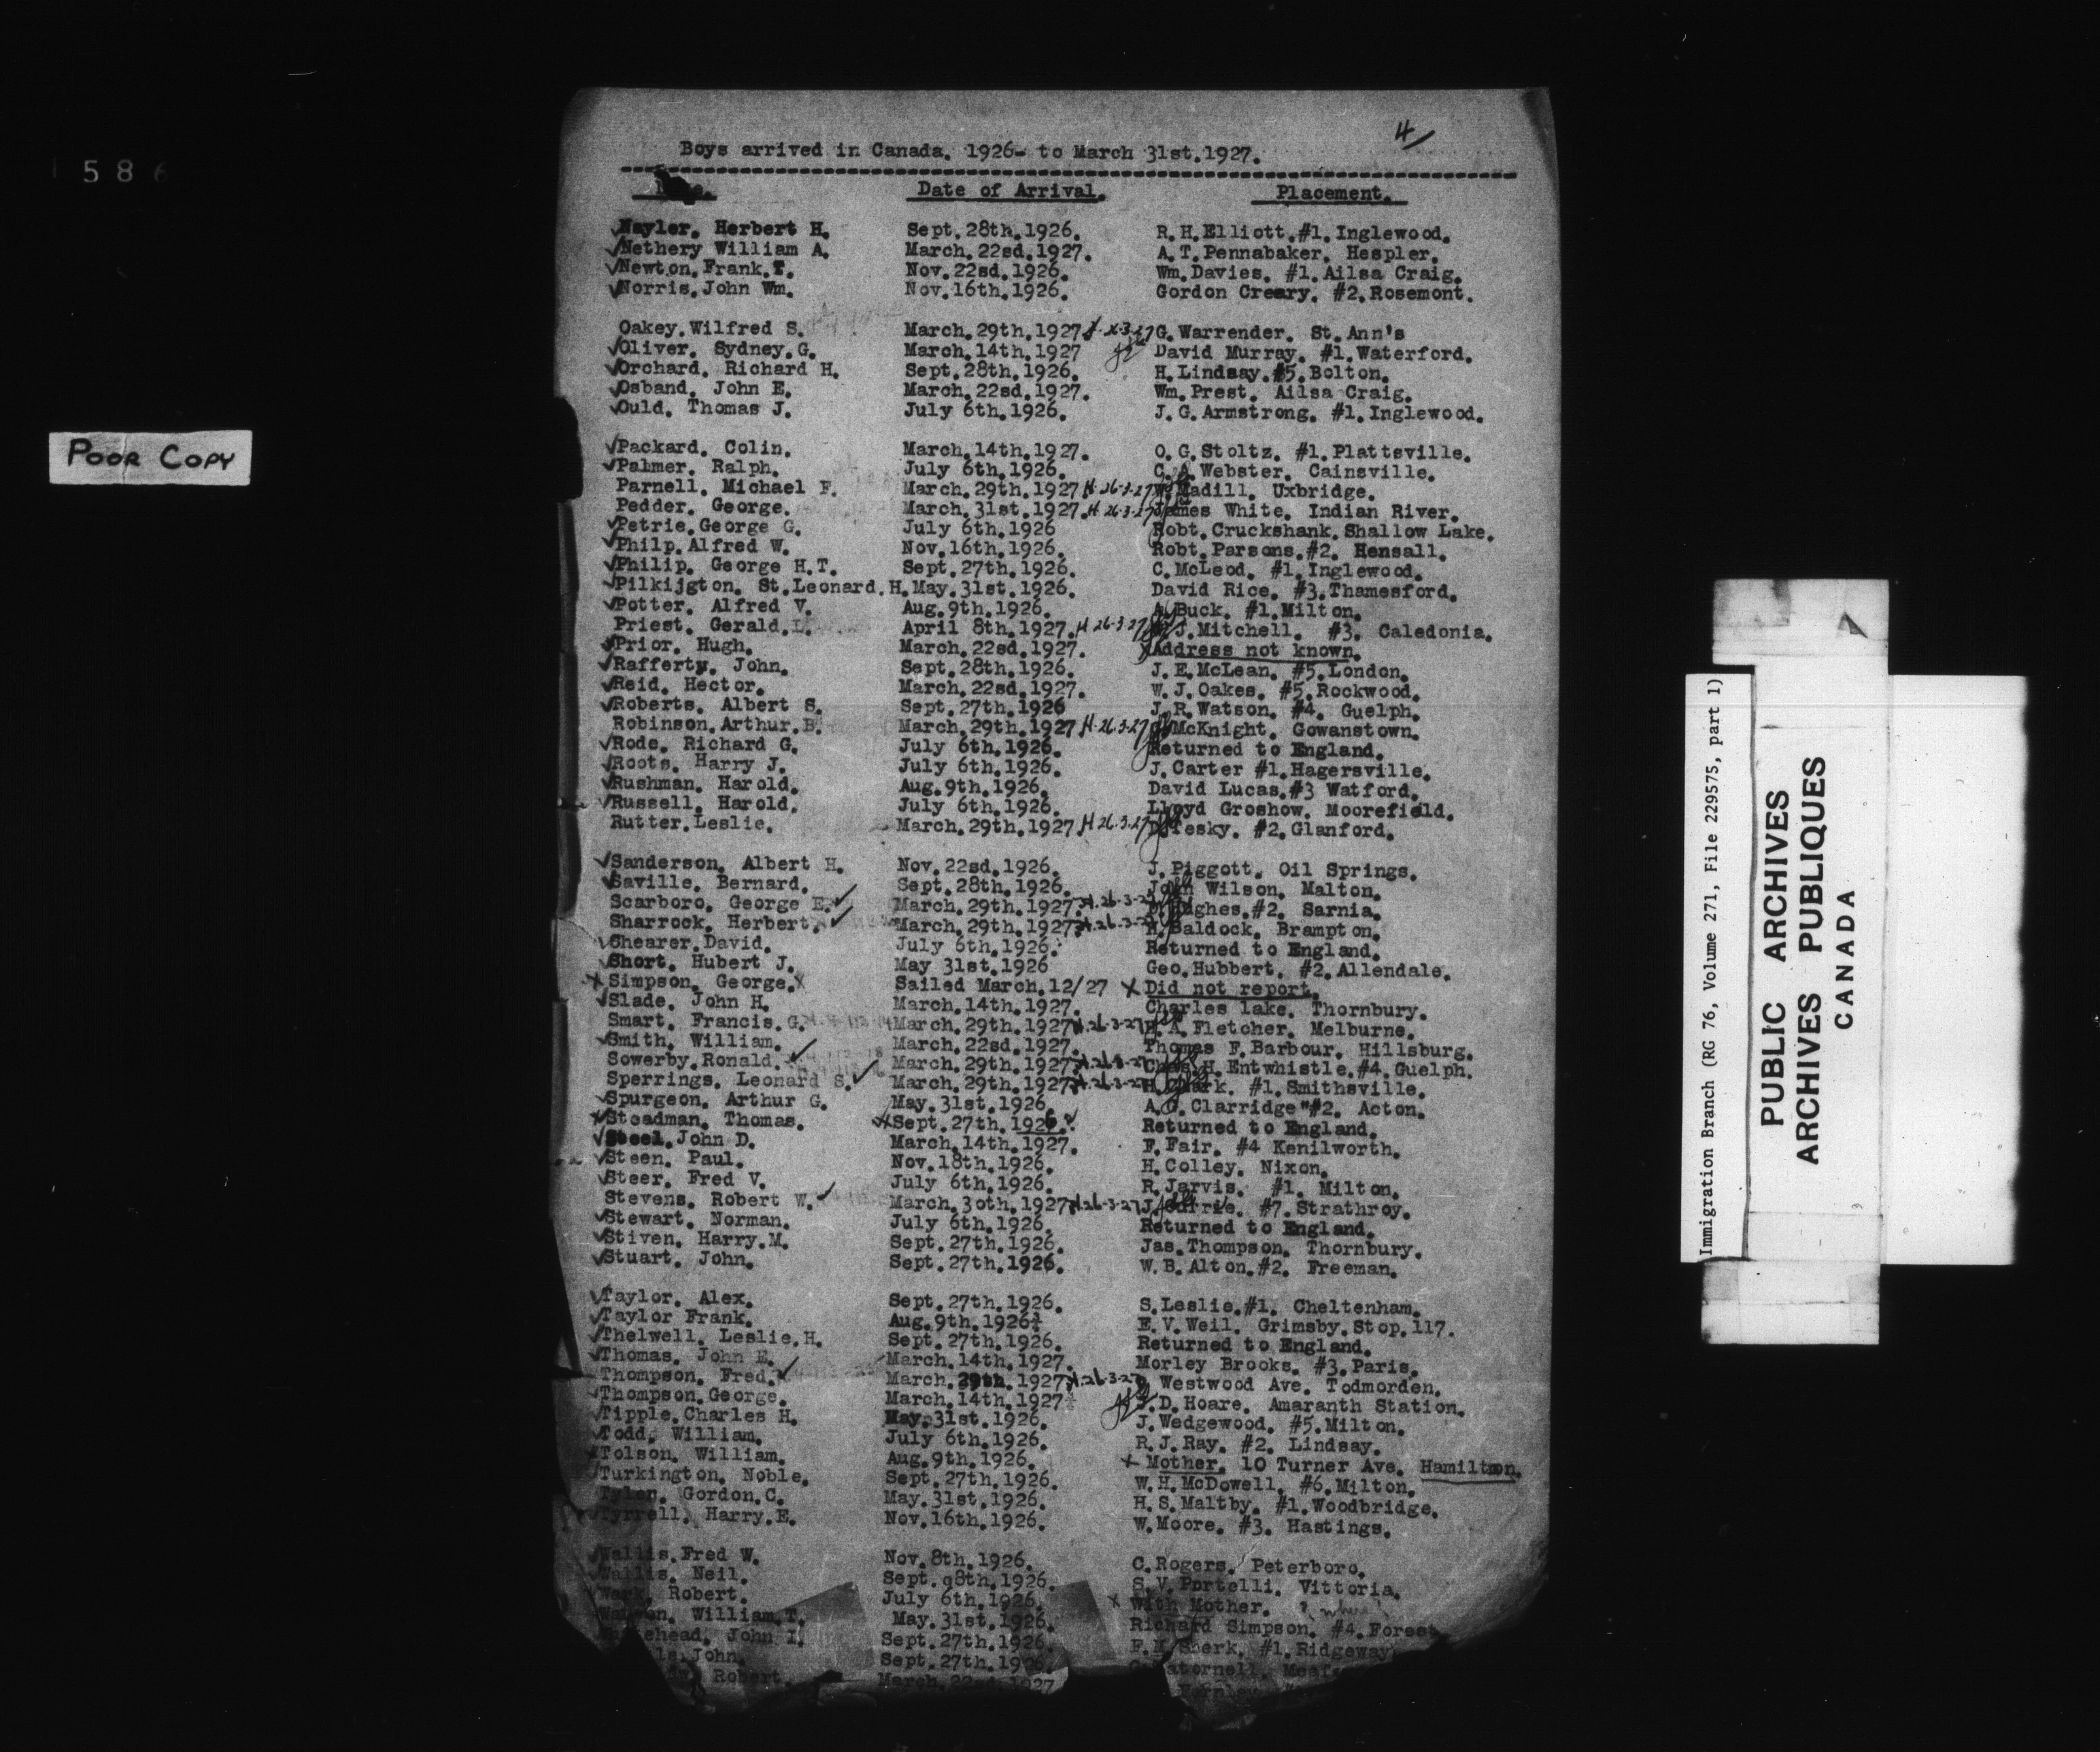 586
POOR COPY
4
Boys arrived in Canada. 1926- to March 31st.1927.
Date of Arrival. Placement.
Nayler. Herbert H. Sept.28th.1926. R.H.Elliott.#1.Inglewood.
Nethery William A. March.22sd.1927. A.T.Pennabaker. Hespler.
Newton.Frank.T. Nov.22sd.1926. Wm.Davies. #1.Ailsa Craig.
Norris.John Wm. Nov.16th.1926. Gordon Creary. #2.Rosemont.
Oakey.Wilfred S. March.29th.1927 G.Warrender. St.Ann's
Oliver. Sydney.G. March.14th.1927 David Murray. #1.Waterford.
Orchard. Richard H. Sept.28th.1926. H.Lindsay.#5.Bolton.
Osband. John E. March.22sd.1927. Wm.Prest. Ailsa Craig.
Ould. Thomas J. July 6th.1926. J.G.Armstrong. #1.Inglewood.
Packard. Colin. March.14th.1927. O.G.Stoltz. #1.Plattsville.
Palmer. Ralph. July 6th.1926. C.A.Webster. Cainsville.
Parnell. Michael F. March.29th.1927 H.26-3-27 Madill. Uxbridge.
Pedder. George. March.31st.1927. H 26.3.27 James White. Indian River.
Petrie.George G. July 6th.1926 Robt.Cruckshank.Shallow Lake.
Philp.Alfred W. Nov.16th.1926. Robt.Parsons.#2. Hensall.
Philip. George H.T. Sept.27th.1926. C.McLeod. #1.Inglewood.
Pilkijgton. St.Leonard.H.May.31st.1926. David Rice. #3.Thamesford.
Potter. Alfred V. Aug.9th.1926. Buck. #1.Milton.
Priest. Gerald.L. April 8th.1927. H 26.3.27 J.Mitchell. #3. Caledonia.
Prior. Hugh. March.22sd.1927. Address not known.
Rafferty. John. Sept.28th.1926. J.E.McLean. #5.London.
Reid. Hector. March.22sd.1927. W.J.Oakes. #5.Rockwood.
Roberts. Albert S. Sept.27th.1926 J.R.Watson. #4. Guelph.
Robinson.Arthur.B. March.29th.1927 H.26.3.27 McKnight. Gowanstown.
Rode. Richard G. July 6th.1926. Returned to England.
Roots. Harry J. July 6th.1926. J.Carter #1.Hagersville.
Rushman. Harold. Aug.9th.1926. David Lucas.#3 Watford.
Russell. Harold. July 6th.1926. Lloyd Groshow. Moorefield.
Rutter.Leslie. March.29th.1927 H 26.3.27 Tesky. #2.Glanford.
Sanderson. Albert H. Nov.22sd.1926. J.Piggott. Oil Springs.
Saville. Bernard. Sept.28th.1926. John Wilson. Malton.
Scarboro. George E. March.29th.1927 H.26-3-27 Hughes.#2. Sarnia.
Sharrock. Herbert. March.29th.1927 H.26-3-27 Baldock. Brampton.
Shearer.David. July 6th.1926. Returned to England.
Short. Hubert J. May 31st.1926 Geo.Hubbert. #2.Allendale.
Simpson. George. Sailed March.12/27 Did not report.
Slade. John H. March.14th.1927. Charles lake. Thornbury.
Smart. Francis.G. March.29th.1927 H.26-3-27 H.A.Fletcher. Melburne.
Smith. William. March.22sd.1927. Thomas F.Barbour. Hillsburg.
Sowerby.Ronald. March.29th.1927 H.26-3-27 Chas.H.Entwhistle.#4.Guelph.
Sperrings. Leonard S. March.29th.1927 H.26-3-27 Clark. #1.Smithsville.
Spurgeon. Arthur G. May.31st.1926. A.G.Clarridge"#2. Acton.
Steadman. Thomas. Sept.27th.1926. Returned to England.
Steel.John D. March.14th.1927. F.Fair. #4 Kenilworth.
Steen. Paul. Nov.18th.1926. H.Colley. Nixon.
Steer. Fred V. July 6th.1926. R.Jarvis. #1. Milton.
Stevens. Robert W. March.3oth.1927 H.26-3-27 J.Currie. #7.Strathroy.
Stewart. Norman. July 6th.1926. Returned to England.
Stiven. Harry.M. Sept.27th.1926. Jas.Thompson. Thornbury.
Stuart. John. Sept.27th.1926. W.B.Alton.#2. Freeman.
Taylor. Alex. Sept.27th.1926. S.Leslie.#1. Cheltenham.
Taylor Frank. Aug.9th.1926 E.V.Weil. Grimsby.Stop.117.
Thelwell. Leslie.H. Sept.27th.1926. Returned to England.
Thomas. John E. March.14th.1927. Morley Brooks. #3.Paris.
Thompson. Fred. March.29th.1927 H.26-3-27 Westwood Ave. Todmorden.
Thompson.George. March.14th.1927 D.Hoare. Amaranth Station.
Tipple.Charles H. May.31st.1926. J.Wedgewood. #5.Milton.
Todd. William. July 6th.1926. R.J.Ray. #2. Lindsay.
Tolson. William. Aug.9th.1926. Mother. 10 Turner Ave. Hamilton.
Turkington. Noble. Sept.27th.1926. W.H.McDowell. #6.Milton.
Tyler. Gordon.C. May.31st.1926. H.S.Maltby. #1.Woodbridge.
Tyrrell. Harry.E. Nov.16th.1926. W.Moore. #3. Hastings.
Wallis.Fred W. Nov.8th.1926. C.Rogers. Peterboro.
Wallis. Neil. Sept.98th.1926. S.V.Portelli. Vittoria.
Robert. July 6th.1926. With Mother.
William.T. May.31st.1926. Richard Simpson. #4.Forest
John I. Sept.27th.1926. Sherk. #1.Ridgeway
John. Sept.27th.1926
Robert. March.22sd.1927
Immigration Branch (RG 76, Volume 271, File 229575, part 1)
PUBLIC ARCHIVES
ARCHIVES PUBLIQUES
CANADA